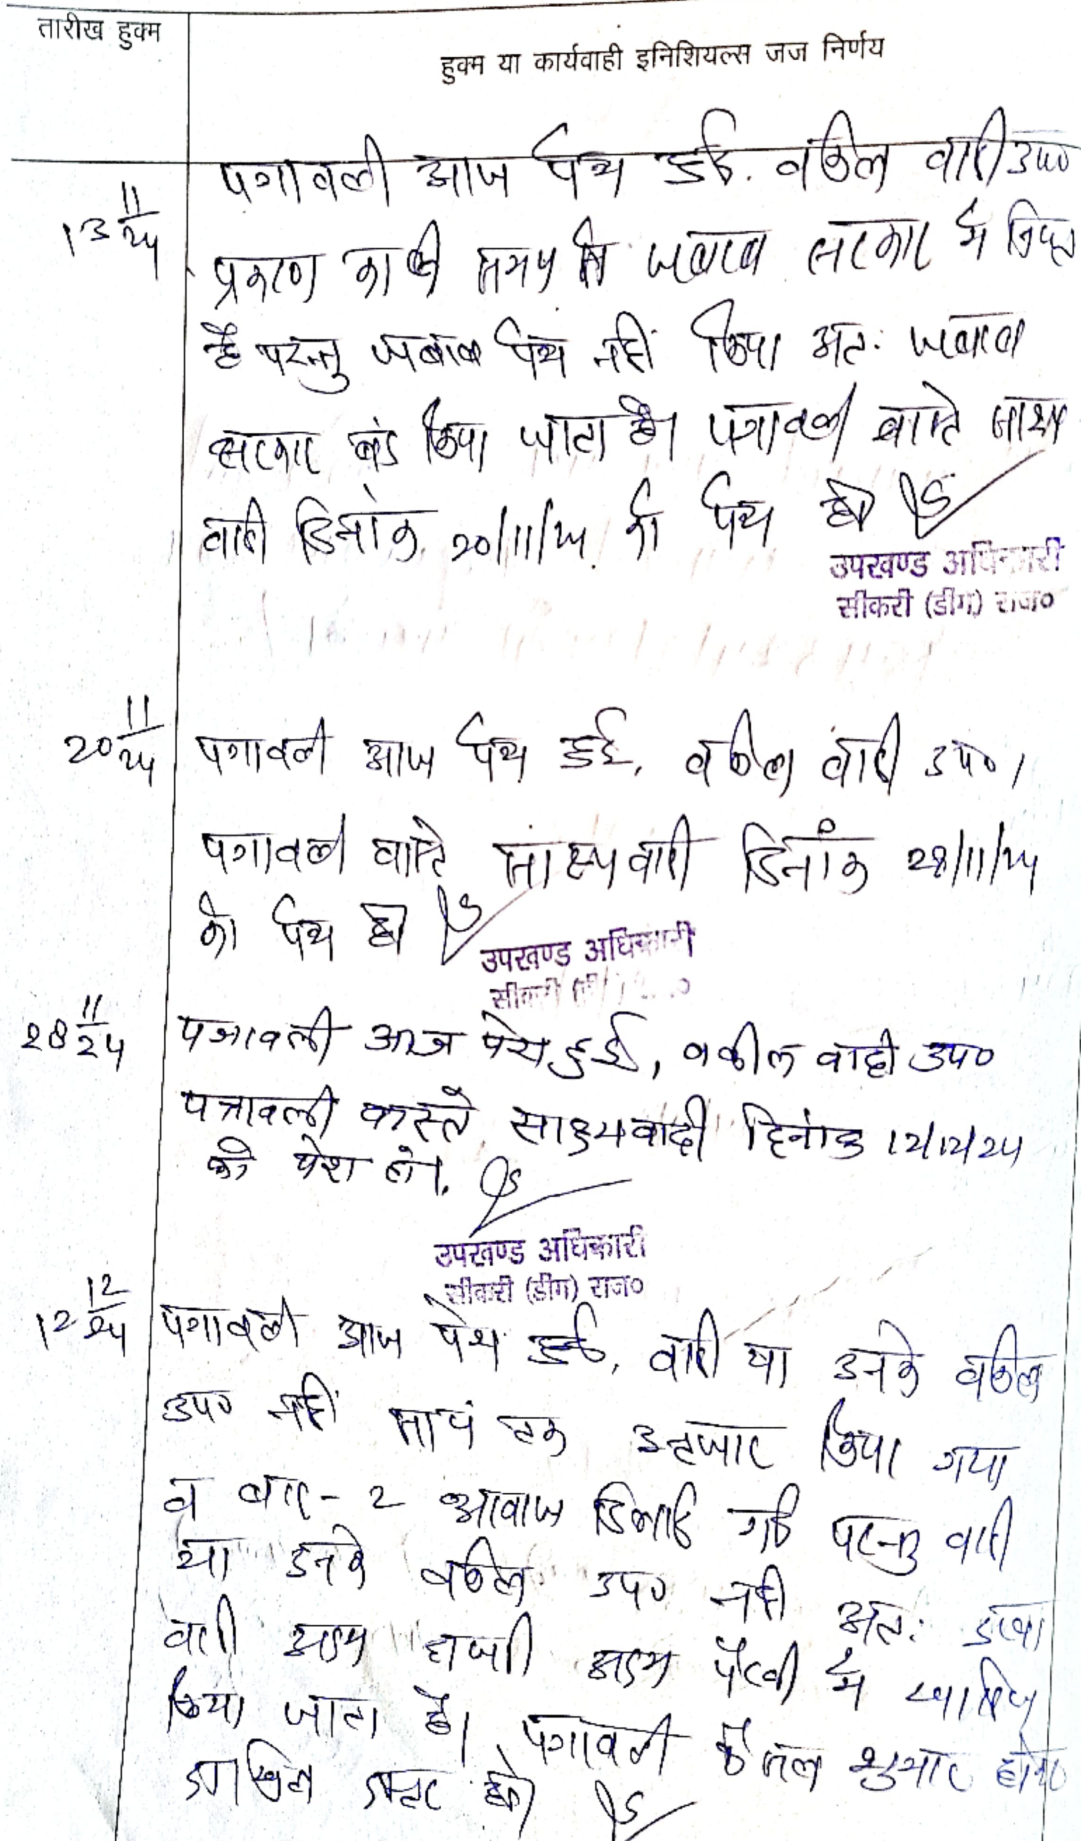 तारीख हुक्म
हुक्म या कार्यवाही इनिशियल्स जज निर्णय
13 11/24
पत्रावली आज पेश हुई. वकील वादी उप०
प्रकरण काफी समय से जबाव सरकार में नियत
है परन्तु जबाव पेश नहीं किया अत: जबाव
सरकार बंद किया जाता है। पत्रावली वास्ते साक्ष्य
वादी दिनांक 20/11/24 को पेश हो
उपखण्ड अधिकारी
सीकरी (डीग) राज०
20 11/24
पत्रावली आज पेश हुई, वकील वादी उप०।
पत्रावली वास्ते साक्ष्य वादी दिनांक 28/11/24
को पेश हो
उपखण्ड अधिकारी
सीकरी
28 11/24
पत्रावली आज पेश हुई, वकील वादी उप०
पत्रावली वास्ते साक्ष्य वादी दिनांक 12/12/24
को पेश हो।
उपखण्ड अधिकारी
सीकरी (डीग) राज०
12 12/24
पत्रावली आज पेश हुई, वादी या उनके वकील
उप० नहीं सायं तक इन्तजार किया गया
व बार-2 आवाज दिलाई गई परन्तु वादी
या उनके वकील उप० नही अत: दावा
वादी अदम हाजरी अदम पैरवी में खारिज
किया जाता है। पत्रावली फैसल शुमार होकर
दाखिल दफ्तर हो